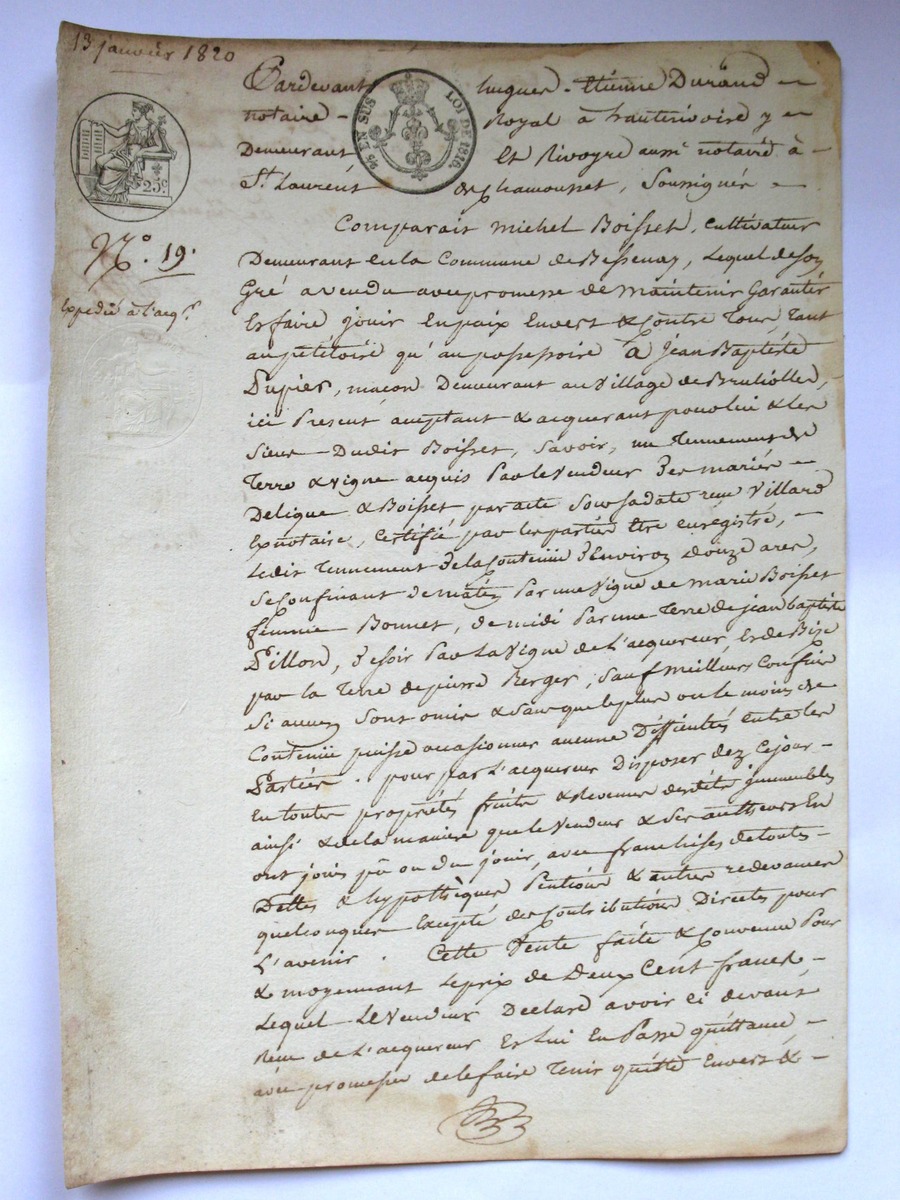 13 janvier 1820
25 EN SUS
LOI DE 1816.
25 c
N.° 19.
Expédié à l'acq.r
Pardevant hugues - Etienne Durand
notaire - Royal à hauterivoire y
Demeurant Et Rivoyre aussi notaire à
St Laurent de chamousset, Soussignés
Comparait michel Boisset, Cultivateur
Demeurant en la Commune de Bessenay, Lequel de son
Gré a vendu avec promesse de maintenir Garantir
Et faire jouir En paix Envers & Contre Tous, Tant
au pétitoire qu'au possessoire à Jean Baptiste
Pupier, maçon Demeurant au Village de Brulliolle,
ici Present acceptant & acquerant pour lui & les
Siens Dudit Boisset, Savoir, un Tennement de
Terre & vigne acquis Par le Vendeur Des mariés
Deligue & Boisset par acte Sous sa date reçu Villard
Exnotaire, Certifié par les parties Etre enregistré,
Ledit Tennement De la Contenue D'Environ Douze ares,
Se Confinant De matin Par une Vigne de marie Boisset
femme Bonnet, de midi Par une Terre de jean baptiste
Pillon, De soir Par La Vigne de L'acquereur, Et de Bize
par la Terre de pierre Berger, Sauf meilleurs Confins
Si aucuns Sont omis & Sans que le plus ou le moins de
Contenue puisse occasionner aucune Difficultés entre les
Parties. pour par L'acquereur Disposer dez Cejour
En toutes propriétés fruits & Revenus desdits immeubles
ainsi & de la manière que le Vendeur & Ses autheurs En
ont joui pû ou Du jouir, avec franchises de toutes
Dettes & hypothèques Pentions & autres redevances
quelconques Excepté des Contributions Directes pour
L'avenir. Cette Vente faite & Convenue Pour
& moyennant Le prix de Deux Cent francs
Lequel Le Vendeur Declare avoir ci devant
Reçu de L'acquereur Et Lui En Passe quittance
avec promesse de le faire Tenir quitte Envers &